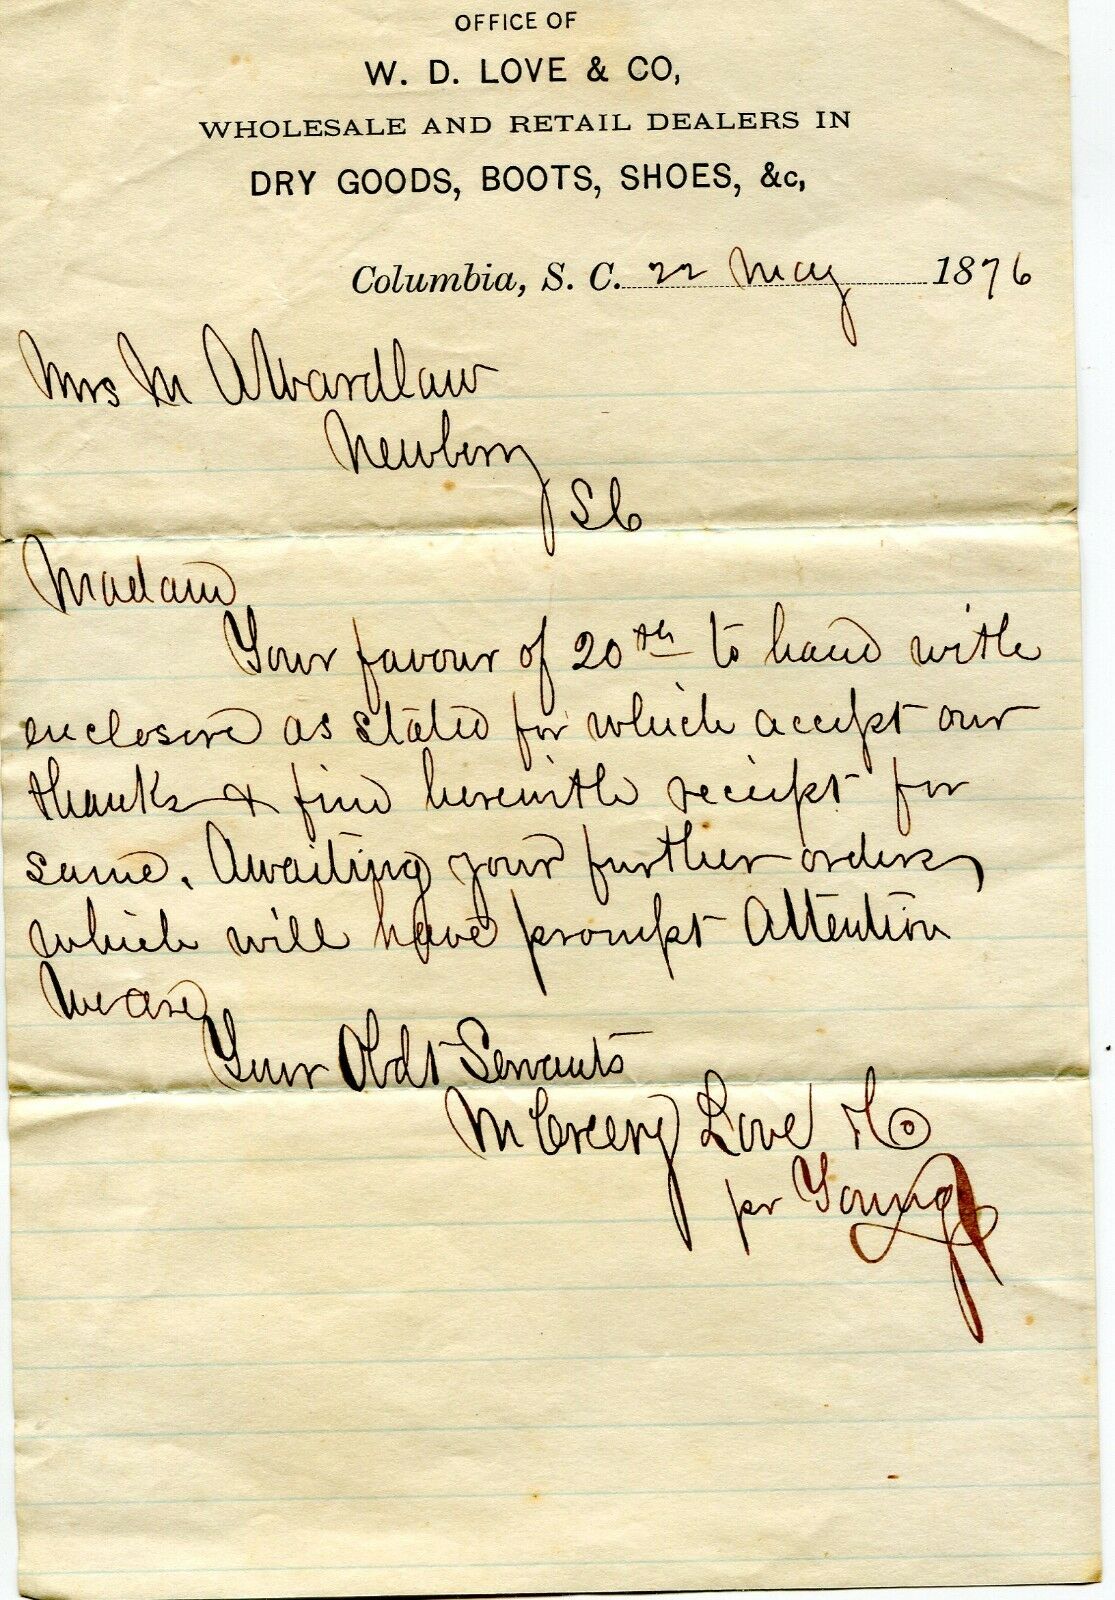 OFFICE OF
W. D. LOVE & CO,
WHOLESALE AND RETAIL DEALERS IN
DRY GOODS, BOOTS, SHOES, &c,
Columbia, S. C. 22 May 1876
Mrs M A Wardlaw
Newberry
S C
Madam
Your favour of 20th to hand with
enclosure as stated for which accept our
thanks & find herewith receipt for
same. Awaiting your further orders,
which will have prompt attention
We are
Your Obdt Servants
McCreery Love & Co
pr Young